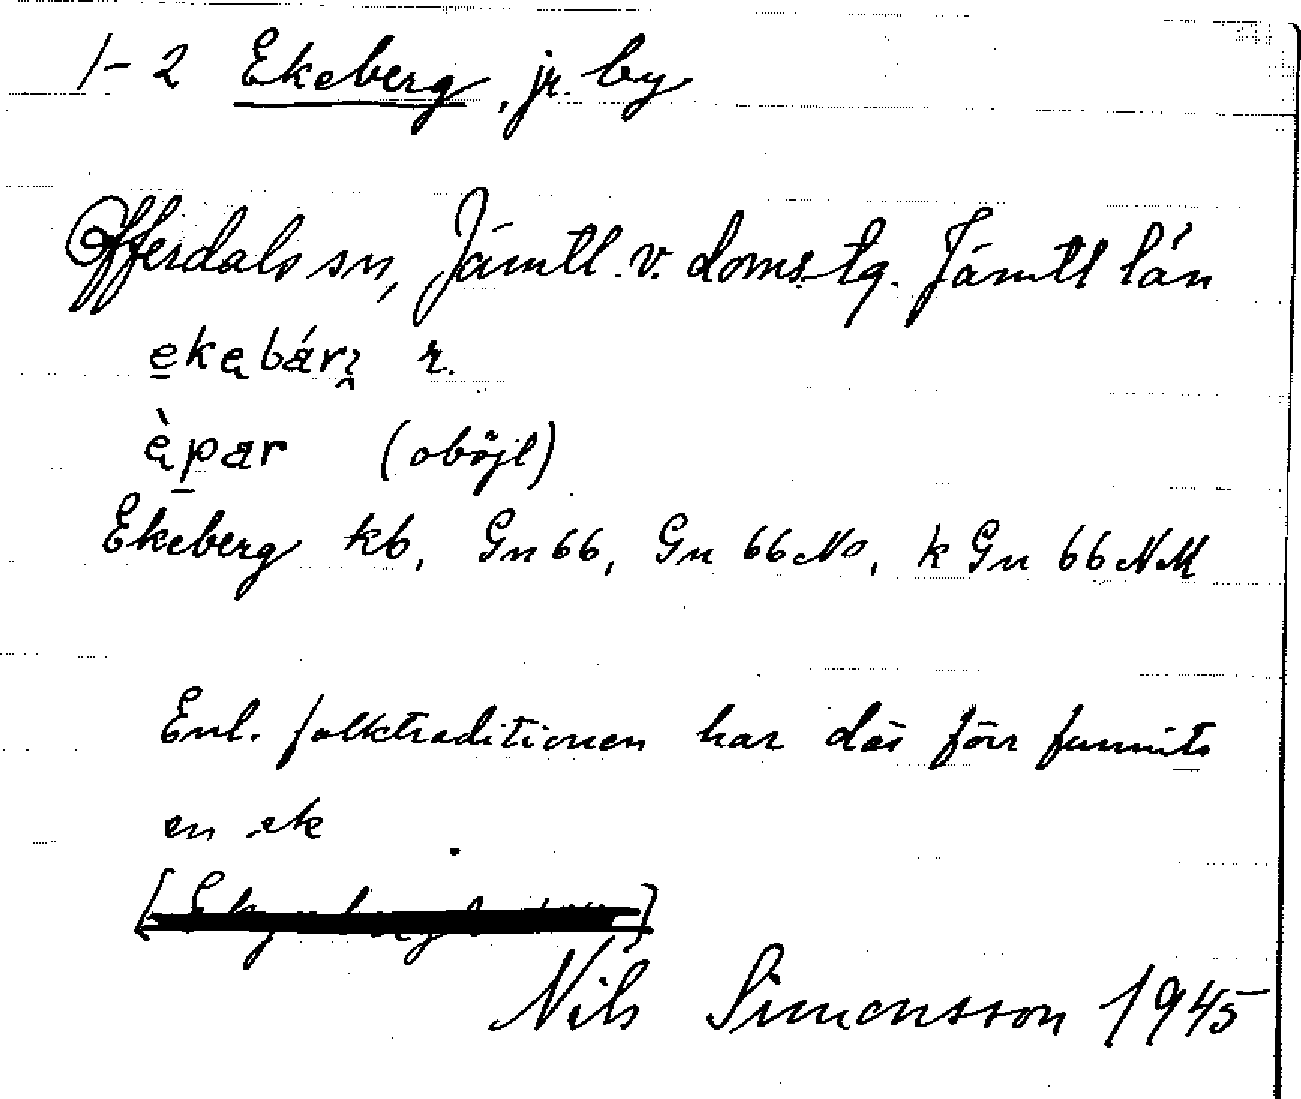 1-2 Ekeberg, jr. by
Offerdals sn, Jämtl. v. doms.tg. Jämtl län
ekębár̥ r.
ę̀par (oböjl)
Ekeberg kb, Gn 66, Gn 66 No, k Gn 66 NM
Enl. folktraditionen har där förr funnits
en ek
Nils Simonsson 1945